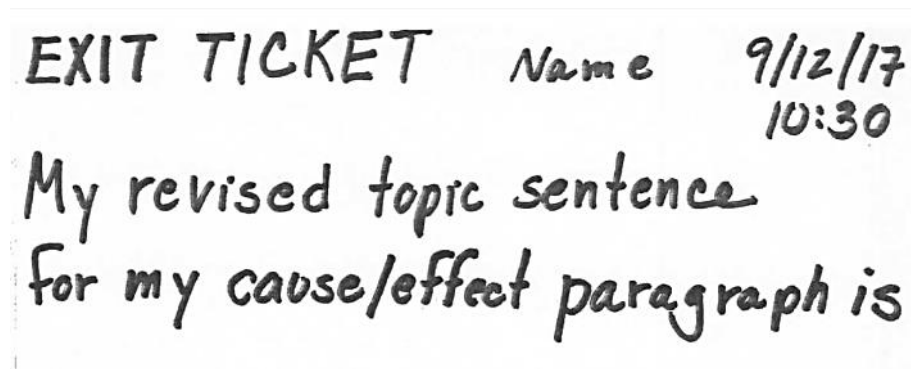 EXIT TICKET Name 9/12/17
10:30
My revised topic sentence
for my cause/effect paragraph is